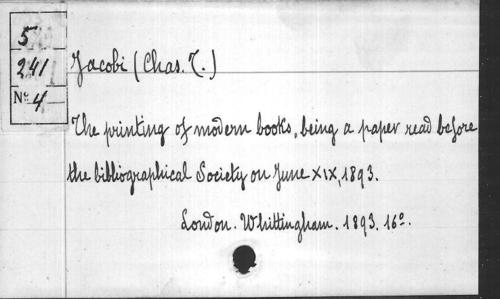 5
241
No 4
Jacobi (Chas. T.)
The printing of modern books, being a paper read before
the bibliographical Society on June XIX, 1893.
London. Whittingham. 1893. 16o.